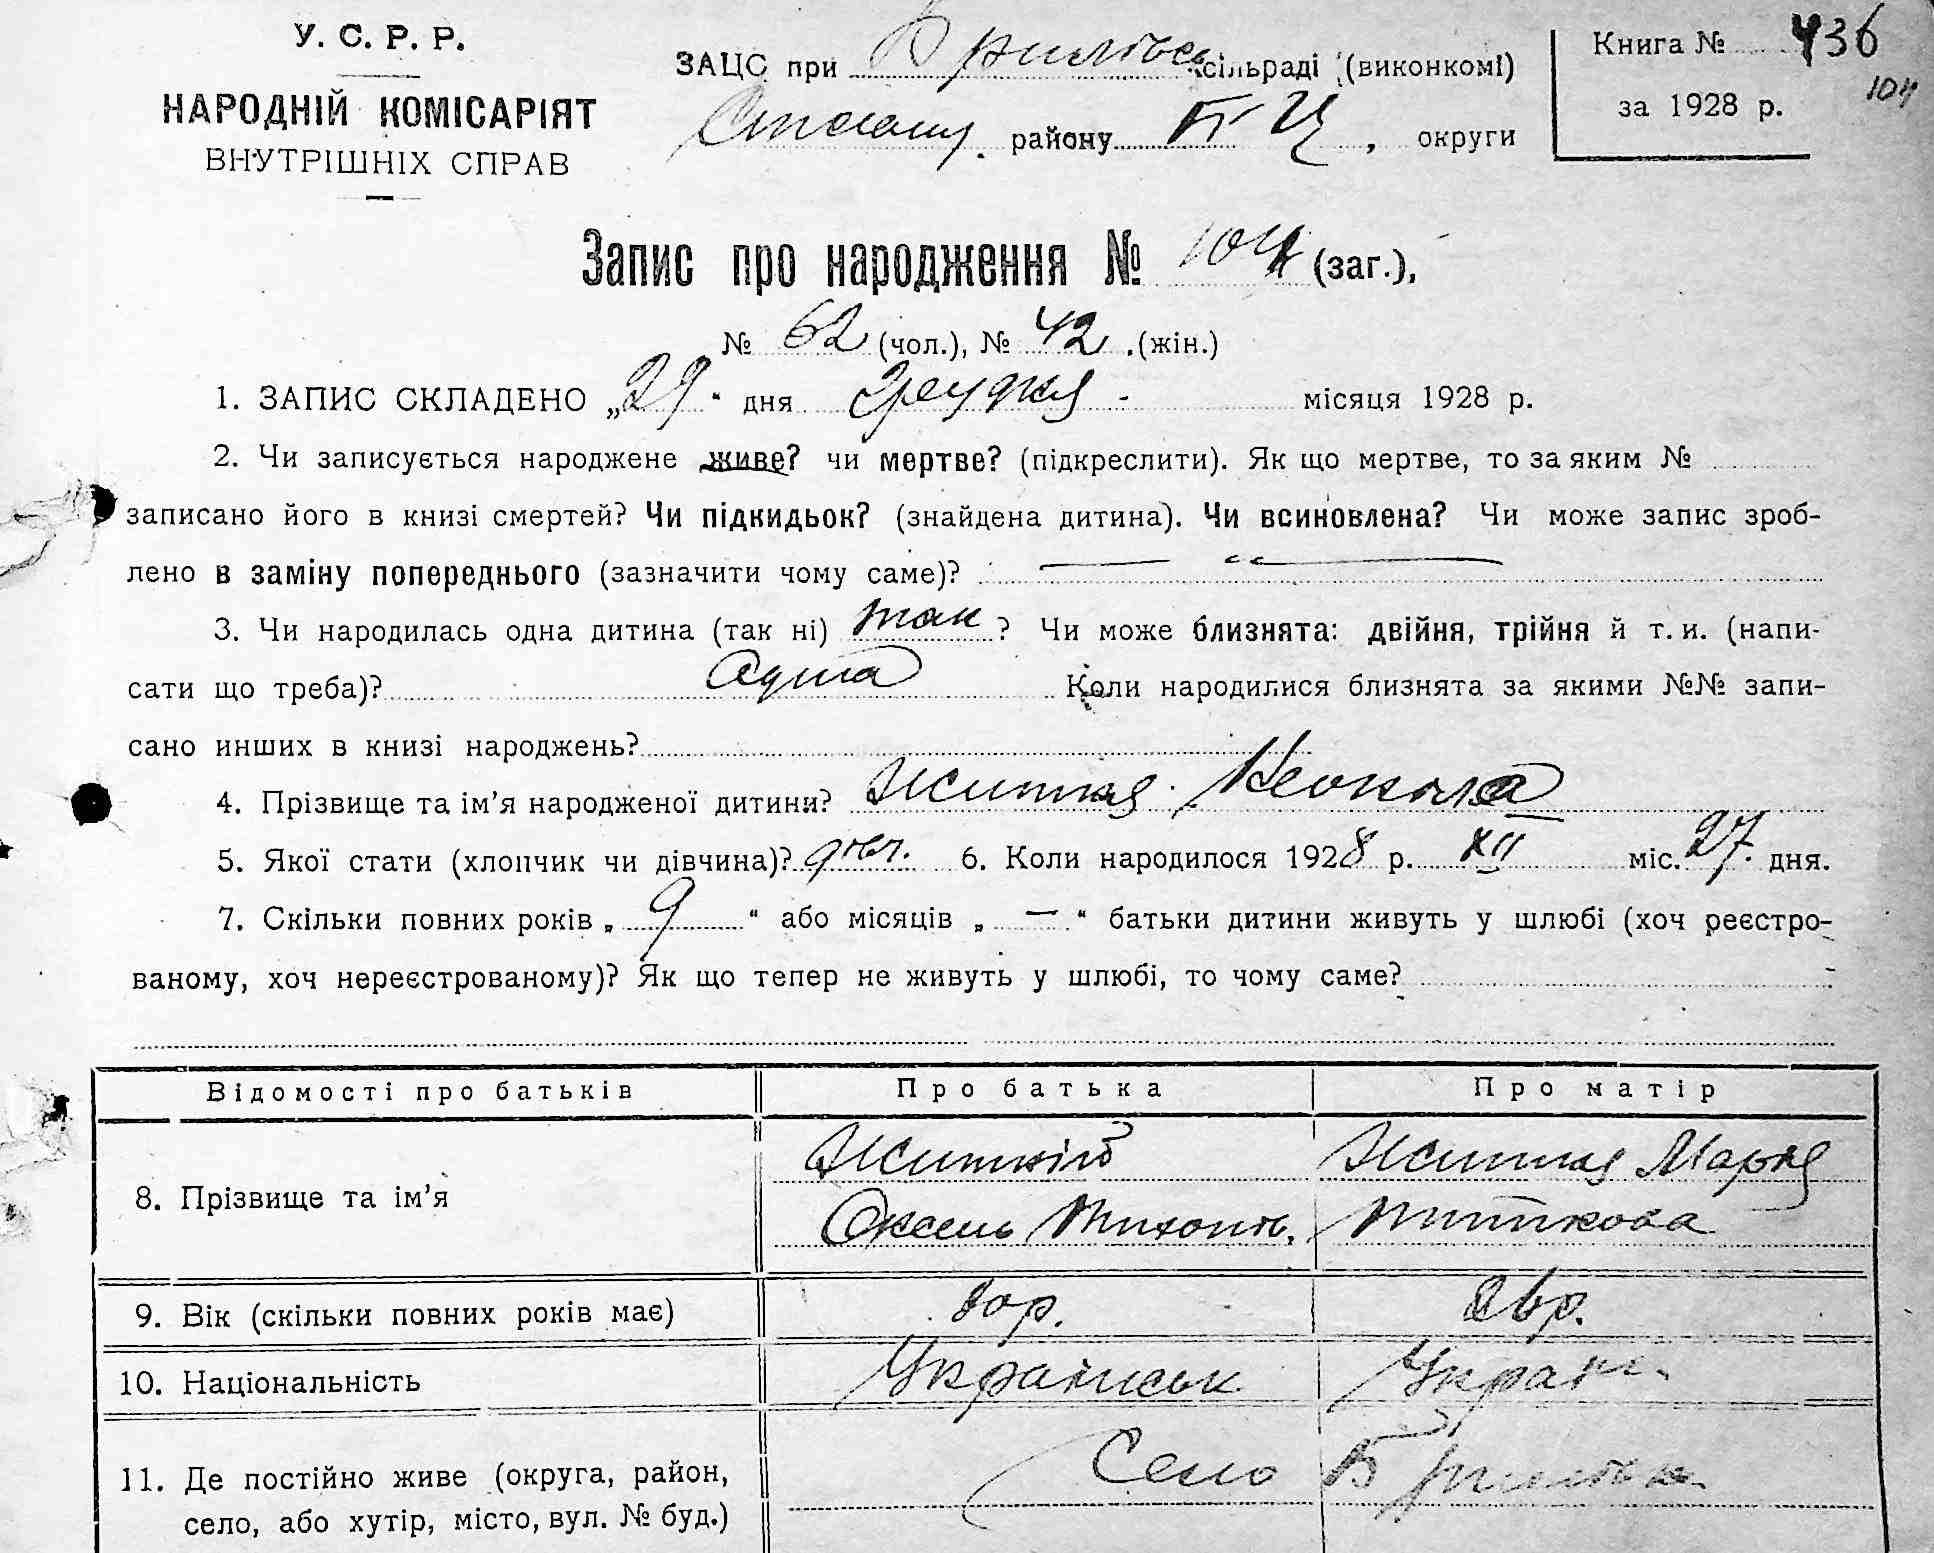 У. С. Р. Р.
НАРОДНІЙ КОМІСАРІЯТ
ВНУТРІШНІХ СПРАВ
ЗАЦС при сільраді (виконкомі)
району БЦ, округи
Книга № 436
104
за 1928 р.
Запис про народження № 104 (заг.),
№ 62 (чол.), № 42 (жін.)
1. ЗАПИС СКЛАДЕНО „29“ дня грудня місяця 1928 р.
2. Чи записується народжене живе? чи мертве? (підкреслити). Як що мертве, то за яким №
записано його в книзі смертей? Чи підкидьок? (знайдена дитина). Чи всиновлена? Чи може запис зроб-
лено в заміну попереднього (зазначити чому саме)?
3. Чи народилась одна дитина (так ні) так? Чи може близнята: двійня, трійня й т. и. (напи-
сати що треба)? Одна Коли народилися близнята за якими №№ запи-
сано инших в книзі народжень?
4. Прізвище та ім’я народженої дитини? Житкая
5. Якої стати (хлопчик чи дівчина)? дівч. 6. Коли народилося 1928 р. XII міс. 27. дня.
7. Скільки повних років „ 9 “ або місяців „ — “ батьки дитини живуть у шлюбі (хоч реєстро-
ваному, хоч нереєстрованому)? Як що тепер не живуть у шлюбі, то чому саме?
Відомості про батьків Про батька Про матір
8. Прізвище та ім’я Житкій Житкая Марія
Оксень Тихонів. Титкова
9. Вік (скільки повних років має)
10. Національність Українськ Україн.
11. Де постійно живе (округа, район, Село
село, або хутір, місто, вул. № буд.)